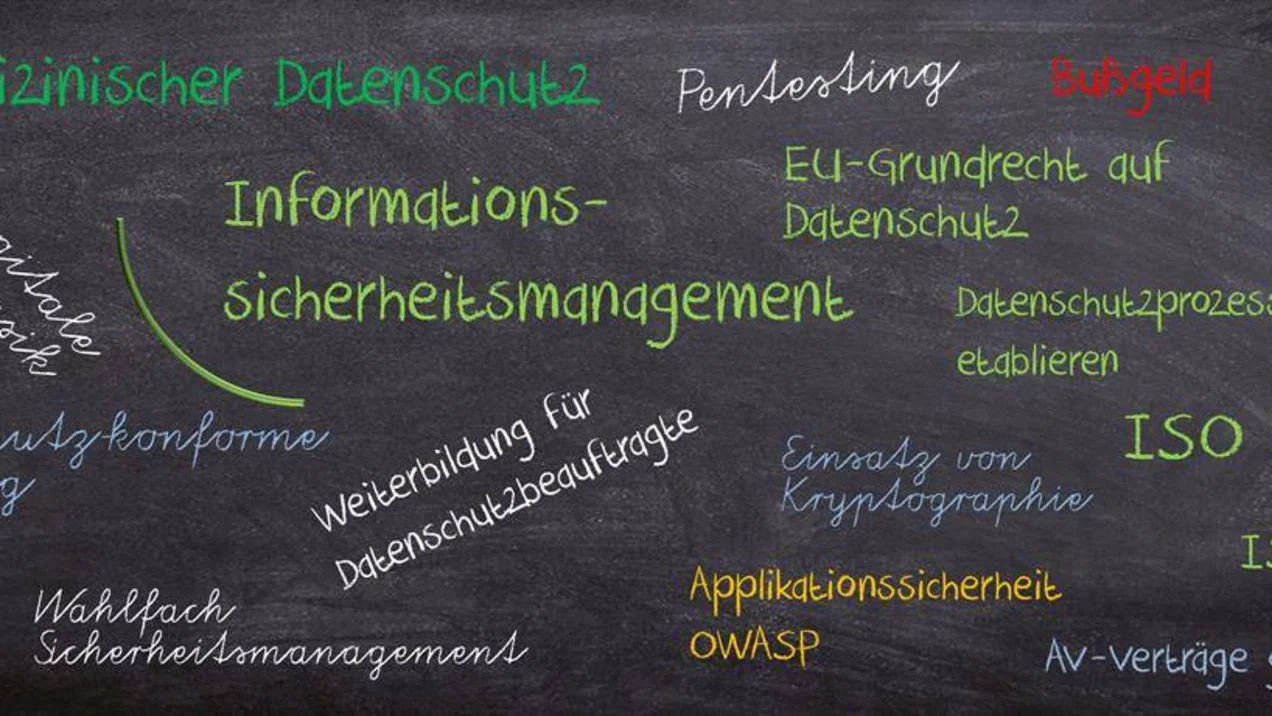 izinischer Datenschutz
Pentesting
Bußgeld
EU-Grundrecht auf
Datenschutz
Informations-
sicherheitsmanagement
Datenschutzprozess
etablieren
gitale
sik
utz-konforme
g
Weiterbildung für
Datenschutzbeauftragte
Einsatz von
Kryptographie
ISO
IS
Wahlfach
Sicherheitsmanagement
Applikationssicherheit
OWASP
AV-Verträge